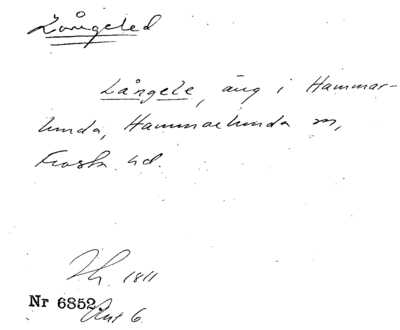 Långeled
Långele, äng i Hammar-
lunda, Hammarlunda sn,
Frosta hd.
Th. 1811
Nr 6852
Akt 6